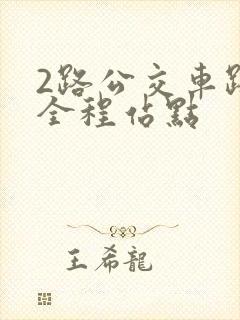 2路公交車路
全程佔點
王希龍